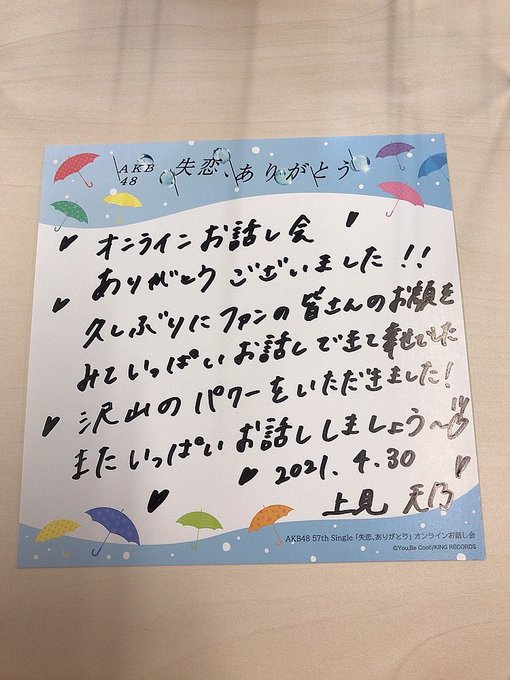 AKB
48
失恋、ありがとう
オンラインお話し会
ありがとうございました!!
久しぶりにファンの皆さんのお顔を
みていっぱいお話しできて幸せでした
沢山のパワーをいただきました!
またいっぱいお話ししましょう〜
2021.4.30
上見 天乃
AKB48 57th Single「失恋、ありがとう」オンラインお話し会
©You,Be Cool!/KING RECORDS